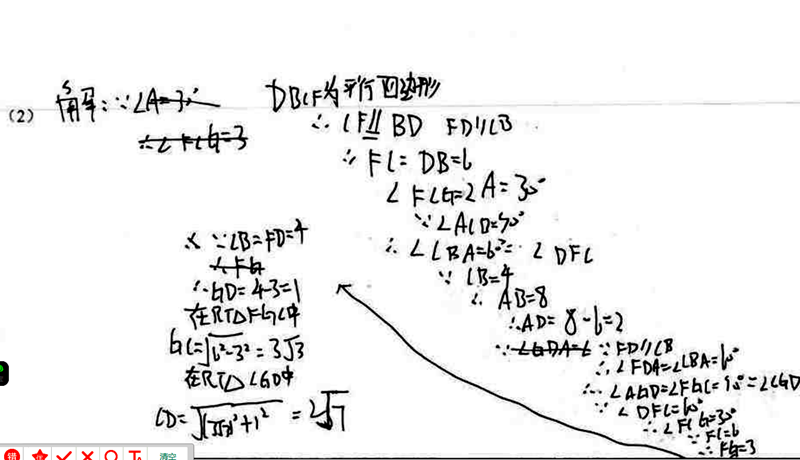 (2) 解:∵∠A=30°
∴∠FCG=3
DBCF为平行四边形
∴CF∥BD FD∥CB
∴FC=DB=6
∠FCG=∠A=30°
∵∠ACB=90°
∴∠CBA=60°=∠DFC
∵CB=4
∴AB=8
∴AD=8-6=2
∵∠GDA=6
∵FD∥CB
∴∠FDA=∠CBA=60°
∴∠AGD=∠FGC=90°=∠CGD
∵∠DFC=60°
∴∠FCG=30°
∵FC=6
∴FG=3
又∵CB=FD=4
∴FG
∴GD=4-3=1
在RT△FGC中
GC=√6²-3²=3√3
在RT△CGD中
CD=√(3√3)²+1²=2√7
错
清空